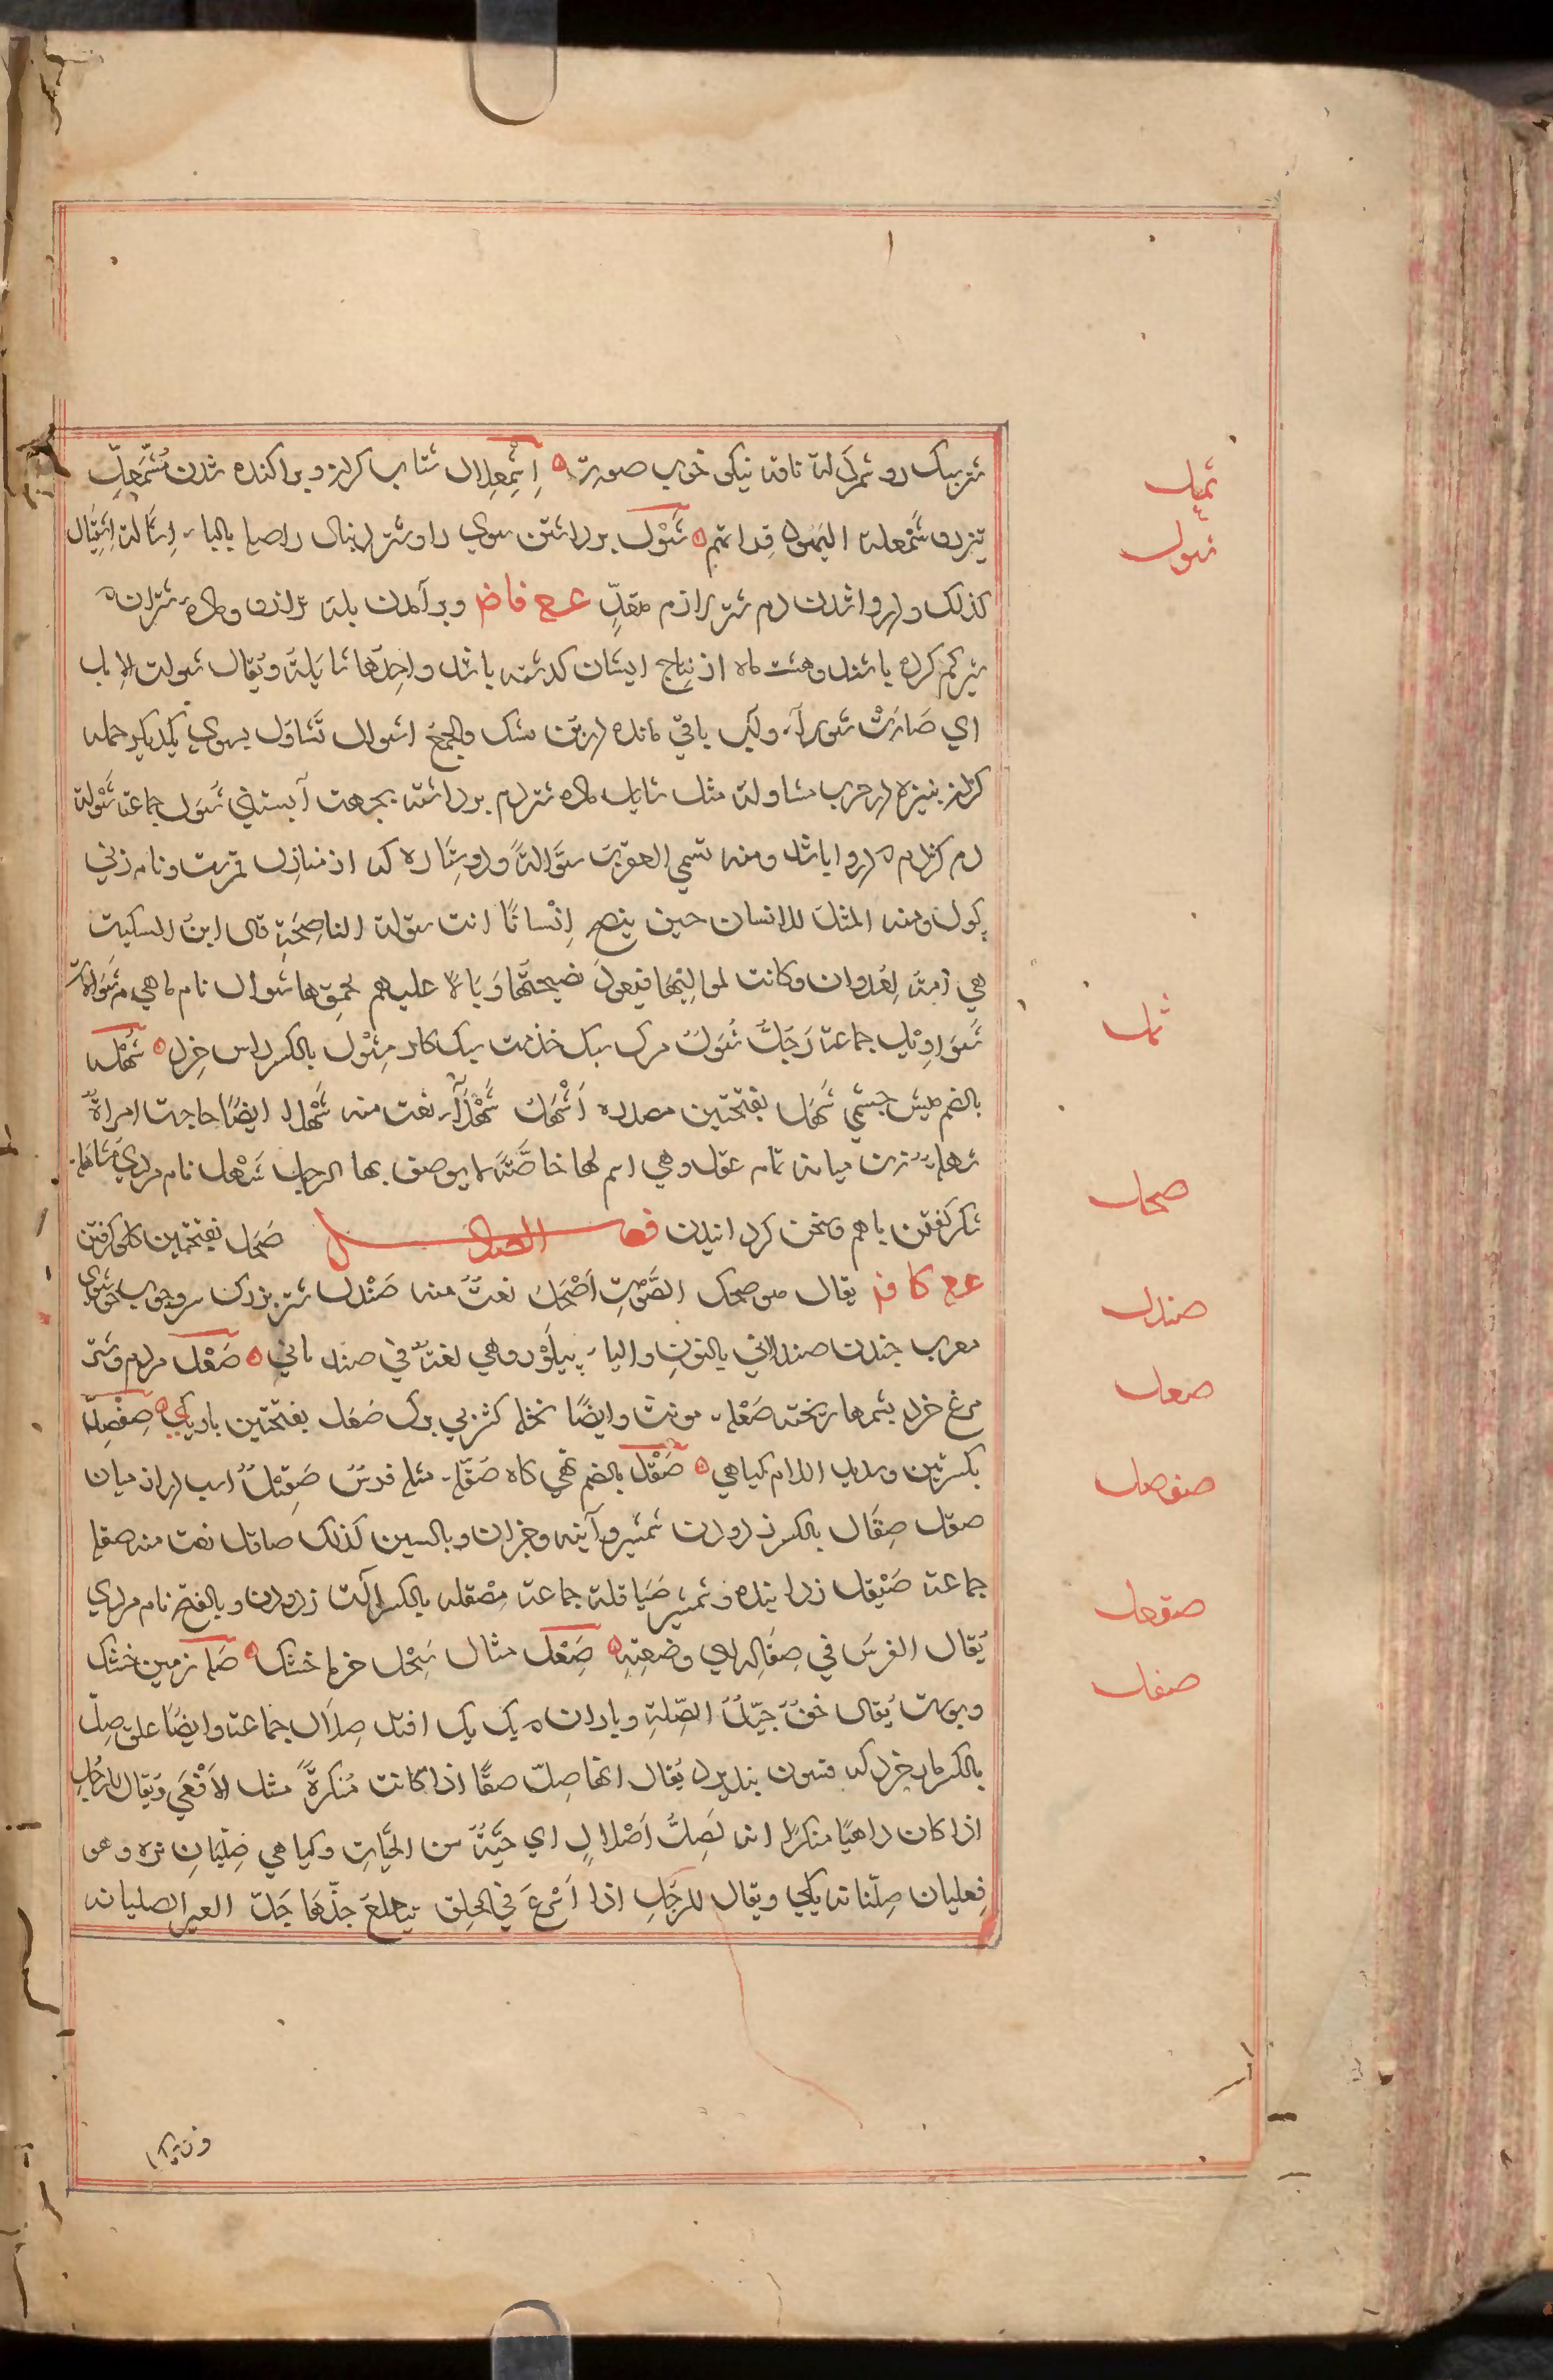 شتر سبک رو شمردلة ناقه نیکی خوب صورت اِشْمِعِلال شتاب کردن و پراکنده شدن مُشْمَعِلّ
تیزرو شَمْعلة الیهود قراءتهم شَوْل برداشتن سبوی را و شتر دنبال را صله بالباء اِشالة اِشتِیال
کذلک و دروا شدن دم شتر لازم متعدٍّ ع ع فاض و برآمدن پله ترازو و ماده شتران
شیر کم کرده باشند و هشت ماه از نتاج ایشان گذشته باشد واحدها شایلة و یُقال شولت الابل
ای صَارَتْ شولاً و آب باقی مانده در بن مشک و الجمع اشوال تَشاوُل بسوی یکدیگر حمله
کردن بنیزه در حرب مشاولة مثله شایل ماده شتر دم برداشته بجهت آبستنی شُوَّل جماعة شَوْلة
دم کژدم که دروا باشد و منه تسمی العقرب شَوَّالةً و دو ستاره که از منازل قمرست و نام زنی
گول و منه المثل للانسان حین ینصح اِنْسانًا انت شولة الناصِحَة قال ابن السکیت
هی اَمَة لِعَدوان و کانت لموالیها فیعود نصیحتُها وَبَالاً علیهم لحمقها شوال نام ماهی شَوّالات
شَوَاوِیل جماعة رَجُلٌ شَوِلٌ مرد سبک خدمت سبک کار مِشْوَل بالکسر داس خرد شُهْلة
بالضم میش چشمی شَهَل بفتحتین مصدره اَشْهَل شَهْلاء نعت منه شَهْلاء ایضًا حاجت امراةٌ
شهلةٌ زن میانه تمام عقل و هی اسم لها خاصَّةً لا یوصف بها الرجل شَهْل نام مردی مُشَاهَلة
شکر گفتن باهم و سخن گردانیدن فصل الصاد صَحَل بفتحتین گلو گرفتن
ع ع کا ف یقال هو صحل الصَّوْتِ اَصْحَل نعتٌ منه صَنْدل شتر بزرگ سر و چوب خوشبوی
معرب چندن صندلانی بالنون والیاء پیلوَر و هی لغةٌ فی صیدلانی صَعْل مردم و شتر
مرغ خرد سر پشمها ریخته صَعْلة مونث و ایضًا نخلة کژ بی برگ صَعَل بفتحتین باریکی صِفْصِلّ
بکسرتین و تشدید اللام گیاهی صُقْل بالضم تهی گاه صُقْلة مثله فرسٌ صَقِلٌ اسب دراز میان
صقل صِقال بالکسر زدودن شمشیر و آینه و جز آن و بالسین کذلک صاقل نعت منه صقلة
جماعة صَیْقَل زداینده شمشیر صَیَاقلة جماعة مِصْقلة بالکسر آلت زدودن و بالفتح نام مردی
یُقال الفرسَ فی صِقَاله ای صنعتِه صَقْعَل مثال سِبَحْل خرما خشک صَلّة زمین خشک
و پوست یُقال خفٌ جیّدُ الصِّلة و باران که یک یک افتد صِلاَل جماعة و ایضًا علق صِلّ
بالکسر مار خرد که فسون نپذیرد یُقال انها صِلّ صفًا اذا کانت مُنکَرةً مثل الاَفْعَی وَیقال للرجُل
اذا کان داهیًا منکرًا انه لَصِلُّ اَصْلالٍ ای حَیّةٌ من الحَیّاتِ و گیاهی صِلِّیَان تره و هو
فِعلیان صِلّیانة یکی و یقال للرجُلِ اذا اَسْرَعَ فی الحلِف جذّها جَذّ العیر الصلیانة
شمل
شول
شهل
صحل
صندل
صعل
صفصل
صقعل
صقل